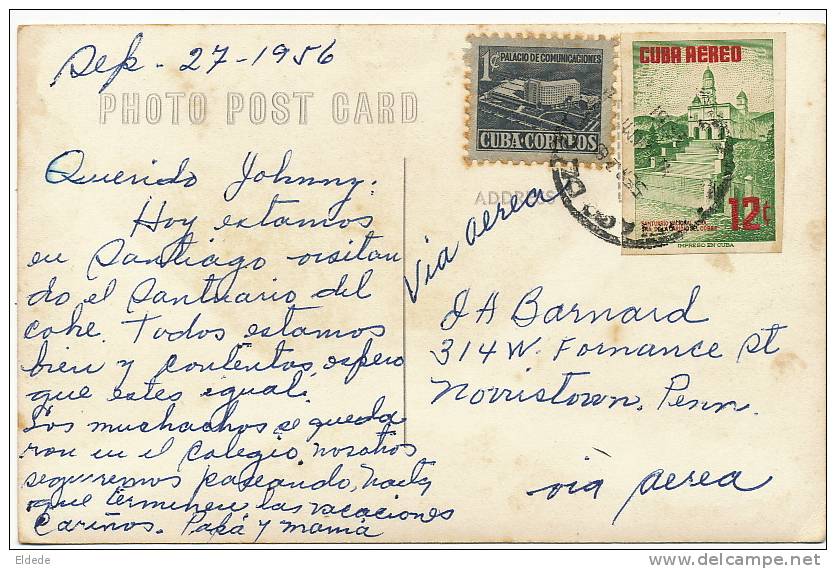 Sep. 27-1956
PHOTO POST CARD
Querido Johnny:
Hoy estamos
en Santiago visitan
do el Santuario del
cobre. Todos estamos
bien y contentos, espero
que estes igual.
Los muchachos se queda
ron en el colegio, nosotros
seguiremos paseando, hasta
que terminen las vacaciones
Cariños. Papá y mamá
1¢ PALACIO DE COMUNICACIONES
CUBA CORREOS
CUBA AEREO
12¢
SANTUARIO NACIONAL
SRA. DE LA CARIDAD DEL COBRE
IMPRESO EN CUBA
ADDRESS
Via aerea
J A Barnard
314 W. Fornance St
Norristown, Penn.
via aerea
Eldede
www.delcampe.net